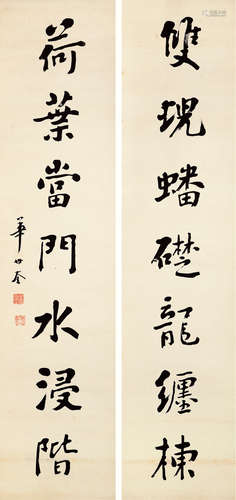 雙蜺蟠礎龍纏棟
荷葉當門水浸階
華世奎